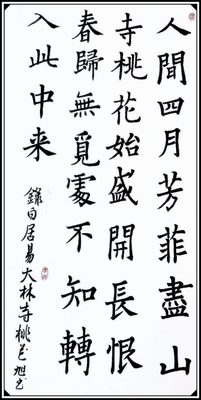 人間四月芳菲盡山
寺桃花始盛開長恨
春歸無覓處不知轉
入此中来
録白居易大林寺桃花 旭书